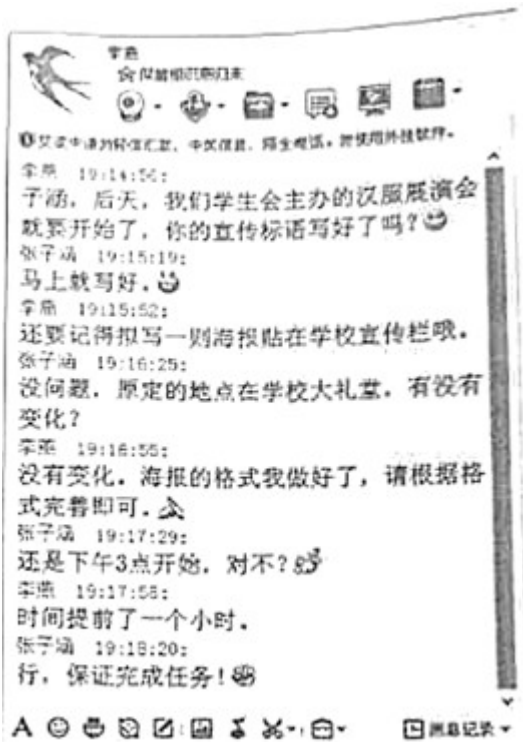 李燕
李燕 19:14:56:
子涵，后天，我们学生会主办的汉服展演会
就要开始了，你的宣传标语写好了吗？
张子涵 19:15:19:
马上就写好．
李燕 19:15:52:
还要记得拟写一则海报贴在学校宣传栏哦。
张子涵 19:16:25:
没问题．原定的地点在学校大礼堂．有没有
变化？
李燕 19:16:55:
没有变化．海报的格式我做好了，请根据格
式完善即可．
张子涵 19:17:29:
还是下午3点开始．对不？
李燕 19:17:58:
时间提前了一个小时．
张子涵 19:18:20:
行，保证完成任务！
A
消息记录